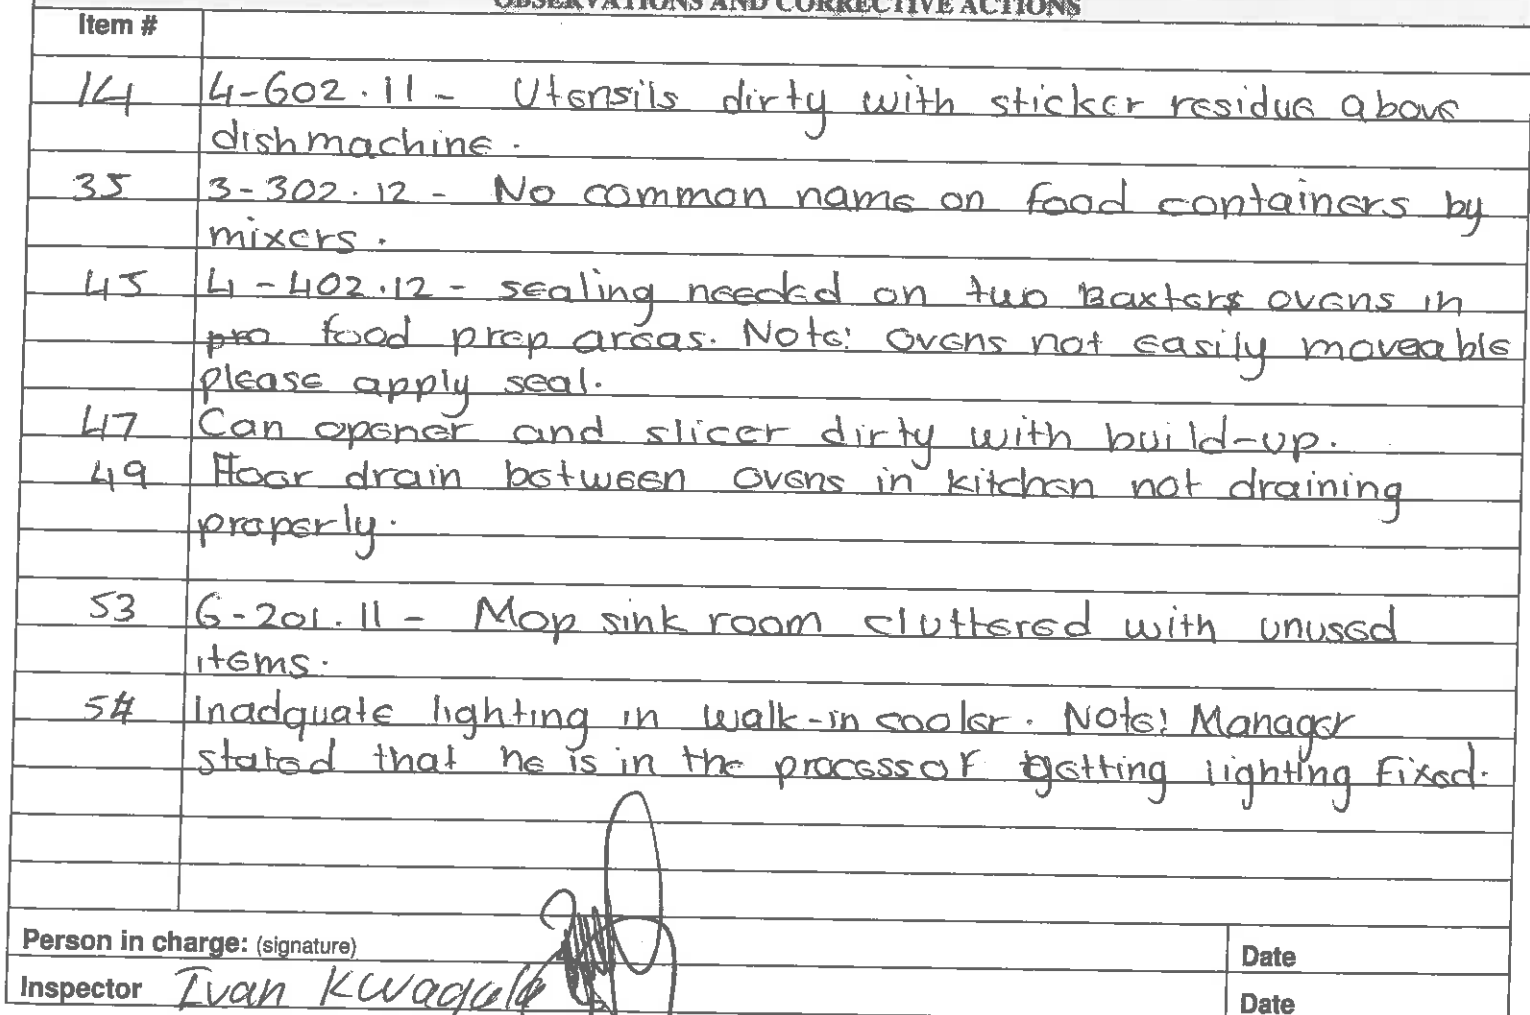 OBSERVATIONS AND CORRECTIVE ACTIONS
Item #
14 4-602.11 - Utensils dirty with sticker residue above
dishmachine.
35 3-302.12 - No common name on food containers by
mixers.
45 4-402.12 - sealing needed on two Baxters ovens in
pro food prep areas. Note: Ovens not easily moveable
please apply seal.
47 Can opener and slicer dirty with build-up.
49 Floor drain between ovens in kitchen not draining
properly.
53 6-201.11 - Mop sink room cluttered with unused
items.
54 Inadquate lighting in walk-in cooler. Note: Manager
stated that he is in the process of getting lighting fixed.
Person in charge: (signature) Date
Inspector Ivan Date